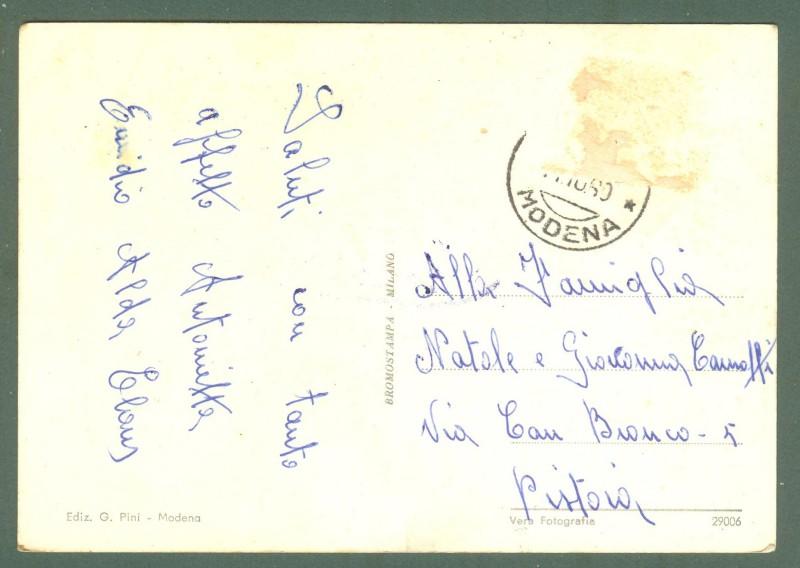 Saluti con tanto
affetto Antonietta
Emidio Alda
MODENA
Alla Famiglia
Natale e Giovanna
Via Can Bianco - 5
Pistoia
BROMOSTAMPA - MILANO
Ediz. G. Pini - Modena
Vera Fotografia 29006